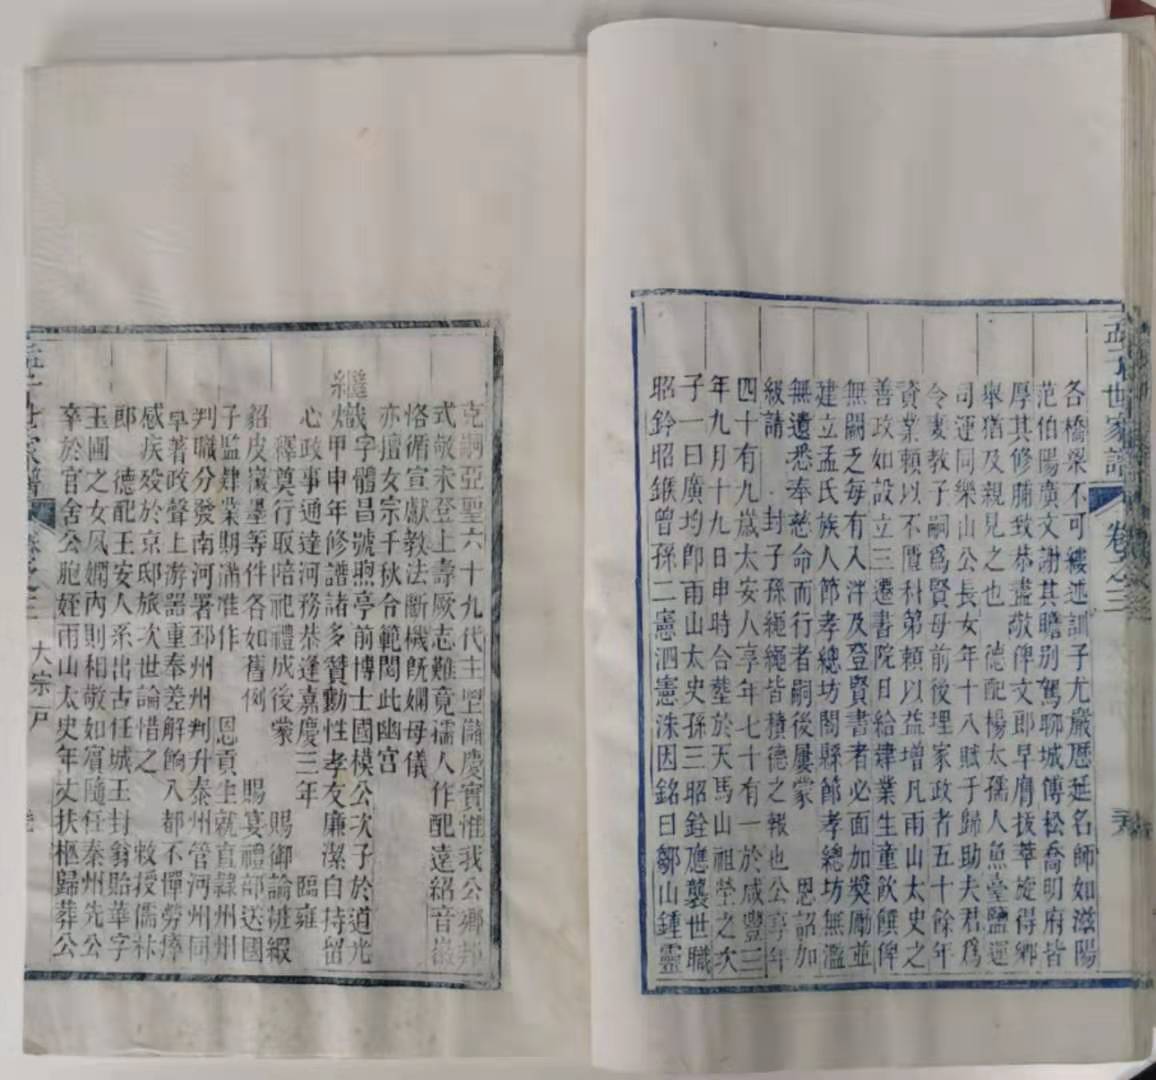 孟子世家譜 卷之三
各橋梁不可縷述訓子尤嚴厯延名師如滋陽
范伯陽廣文謝其瞻别駕聊城傅松喬明府皆
厚其修脯致恭盡敬俾文郎早膺拔萃旋得鄉
舉猶及親見之也 德配楊太孺人魚臺鹽運
司運同樂山公長女年十八賦于歸助夫君爲
令妻教子嗣爲賢母前後理家政者五十餘年
資業賴以不隕科第賴以益增凡雨山太史之
善政如設立三遷書院日給肄業生童飲饌俾
無闕乏每有入泮及登賢書者必面加獎勵並
建立孟氏族人節孝總坊閤縣節孝總坊無濫
無遺悉奉慈命而行者嗣後屢蒙 恩詔加
級請 封子孫繩繩皆積德之報也公享年
四十有九歲太安人享年七十有一於咸豐三
年九月十九日申時合塟於天馬山祖塋之次
子一曰廣均即雨山太史孫三昭銓應襲世職
昭鈐昭鍭曾孫二憲泗憲洙因銘曰鄒山鍾靈
克嗣亞聖六十九代主鬯儲慶實惟我公鄉邦
式敬未登上壽厥志難竟孺人作配遠紹音徽
恪循宣獻教法斷機旣嫻母儀
亦擅女宗千秋合範閟此幽宫
繼熾字體昌號煦亭前博士國模公次子於道光
甲申年修譜諸多贊勷性孝友廉潔自持留
心政事通達河務恭逢嘉慶三年 臨雍
釋奠行取陪祀禮成後蒙 賜御論班緞
貂皮徽墨等件各如舊例 賜宴禮部送國
子監肄業期滿准作 恩貢生就直隸州州
判職分發南河署邳州州判升泰州管河州同
早著政聲上游器重奉差解餉入都不憚勞瘁
感疾殁於京邸旅次世論惜之 敕授儒林
郎 德配王安人系出古任城王封翁貽華字
玉圃之女夙嫻内則相敬如賓隨任泰州先公
卒於官舍公胞姪雨山太史年丈扶柩歸葬公
孟子世家譜 卷之三 大宗户